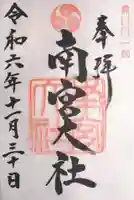 奉拝
南宮大社
令和六年十一月三十日